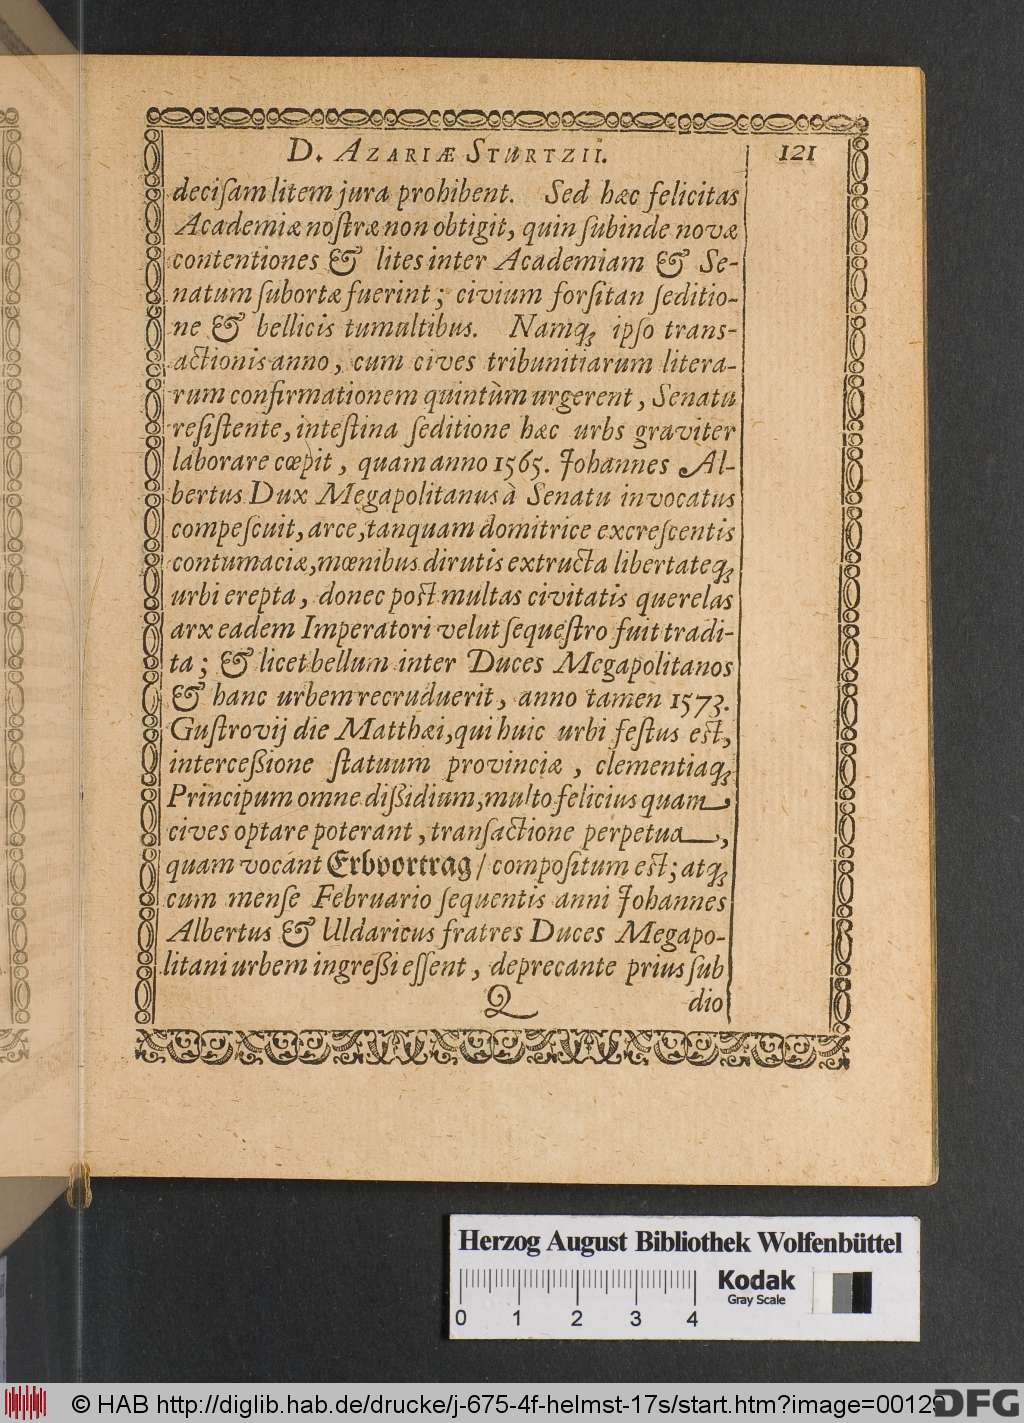 D. AZARIÆ STURTZII. 121
deciſam litem jura prohibent. Sed hæc felicitas
Academiæ noſtræ non obtigit, quin ſubinde novæ
contentiones & lites inter Academiam & Se-
natum ſubortæ fuerint; civium forſitan ſeditio-
ne & bellicis tumultibus. Namq́; ipſo trans-
actionis anno, cum cives tribunitiarum litera-
rum confirmationem quintùm urgerent, Senatu
reſiſtente, inteſtina ſeditione hæc urbs graviter
laborare cœpit, quam anno 1565. Johannes Al-
bertus Dux Megapolitanus à Senatu invocatus
compeſcuit, arce, tanquam domitrice excreſcentis
contumaciæ, mœnibus dirutis extructa libertateq́;
urbi erepta, donec poſt multas civitatis querelas
arx eadem Imperatori velut ſequeſtro fuit tradi-
ta; & licet bellum inter Duces Megapolitanos
& hanc urbem recruduerit, anno tamen 1573.
Guſtrovij die Matthæi, qui huic urbi feſtus eſt,
interceßione ſtatuum provinciæ, clementiaq́;
Principum omne dißidium, multo felicius quam
cives optare poterant, tranſactione perpetua,
quam vocant Erbvortrag/ compoſitum eſt; atq́;
cum menſe Februario ſequentis anni Johannes
Albertus & Uldaricus fratres Duces Megapo-
litani urbem ingreßi eſſent, deprecante prius ſub
Q dio
Herzog August Bibliothek Wolfenbüttel
Kodak
Gray Scale
0 1 2 3 4
© HAB http://diglib.hab.de/drucke/j-675-4f-helmst-17s/start.htm?image=00129
DFG